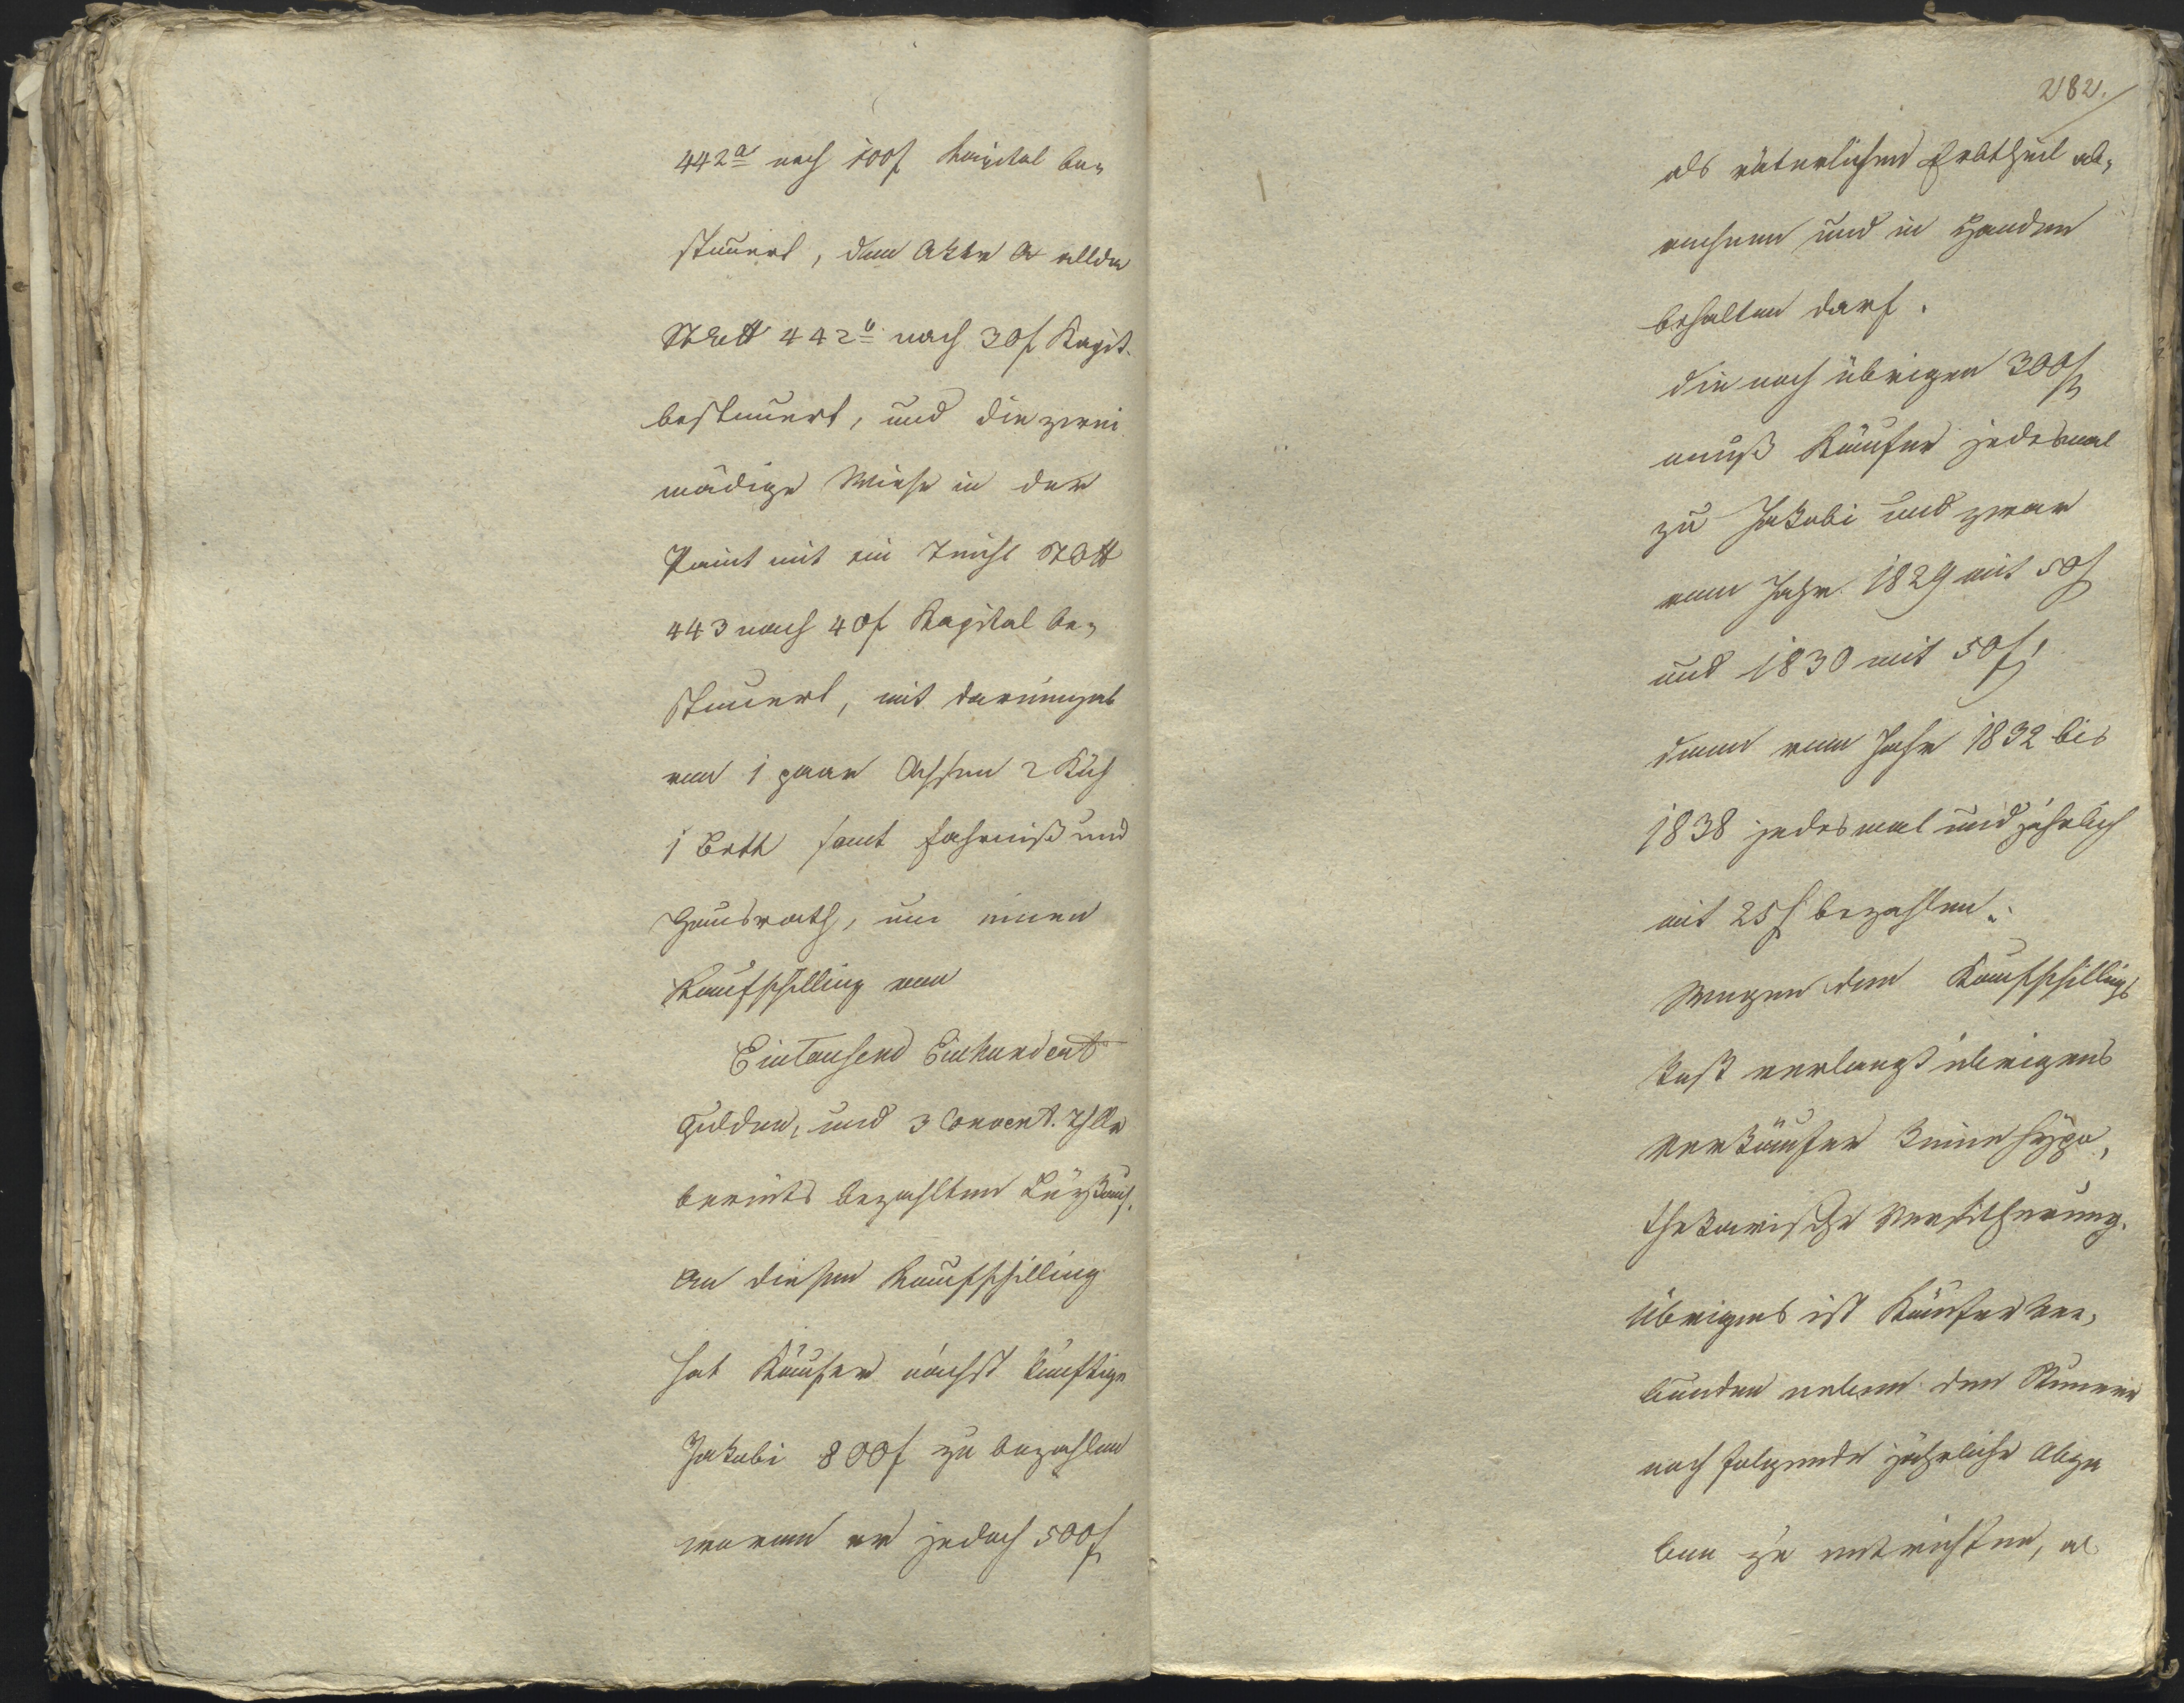 442a nach 100f Kapital be„
steuert, dem Aker a allda
442b nach 30f Kapit.
besteuert, und die zwei
mädige Wiese in der
Paint mit ein
443 nach 40f Kapital be„
steuert, mit dareingab
von 1 paar Ochsen 2 Küh
1 Beth samt Fahrniß und
Hausrath, um einen
Kaufschilling von
Eintausend Einhundert
Gulden, und 3 Convent. Thlr
bereits bezahlten Leykauf.
An diesem Kaufschilling
hat Käufer nächst künftige
Jakobi 800f zu bezahlen
wovon er jedoch 500f
282.
als väterlichen Erbtheil ab„
rechnen und in Handen
behalten darf.
die noch übrigen 300f
muß Käufer jedesmal
zu Jakobi und zwar
vom Jahr 1829 mit 50f
und 1830 mit 50f,
dann vom Jahr 1832 bis
1838 jedesmal und jährlich
mit 25f bezahlen.
Wegen dem Kaufschillings
Rest verlangt übrigens
Verkäufer keine hypo„
thekarische Versicherung.
Übrigens ist Käufer ver„
bunden neben den Steuern
noch folgende jährliche Abga
ben zu entrichten, al